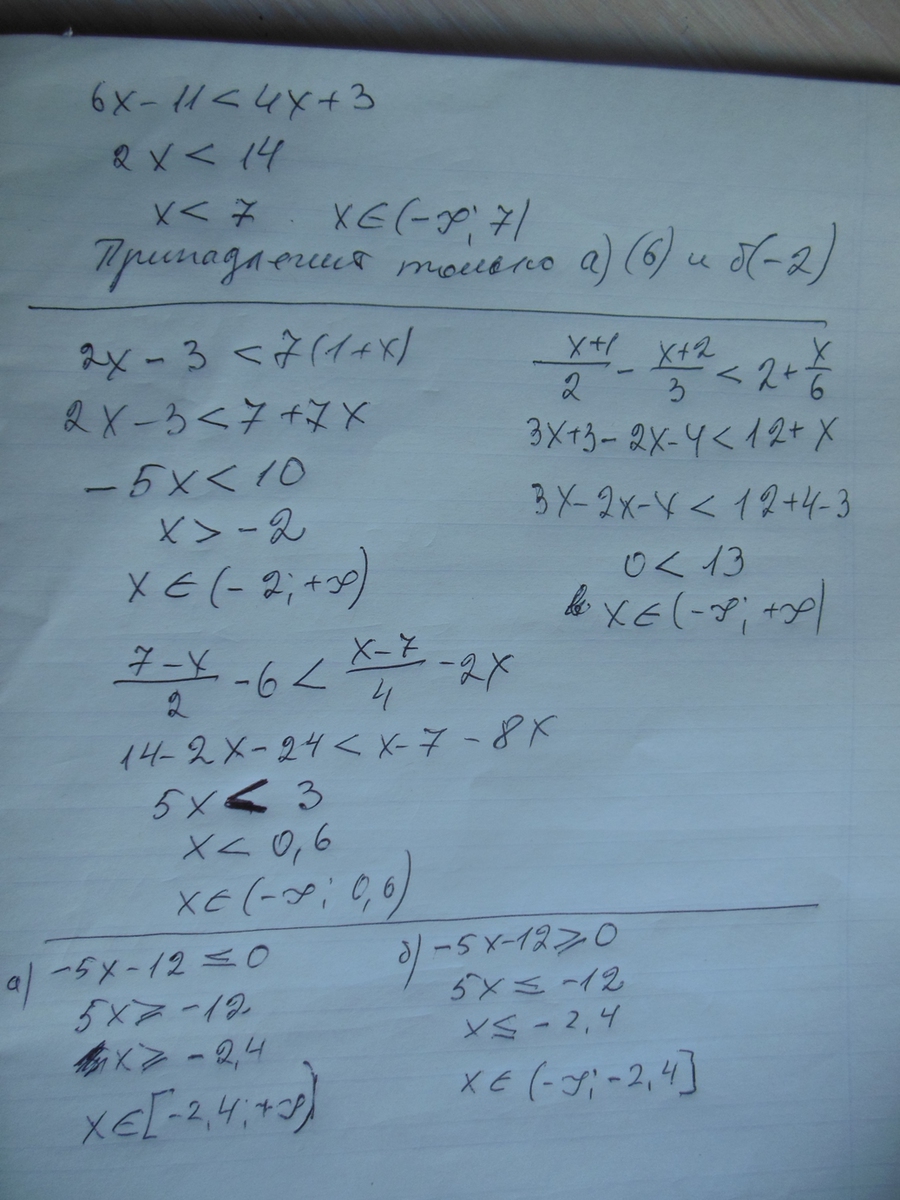 6x-11<4x+3
2x<14
x<7. x∈(-∞; 7)
Принадлежит только а)(6) и б(-2)
2x-3<7(1+x)
2x-3<7+7x
-5x<10
x>-2
x∈(-2;+∞)
(x+1)/2-(x+2)/3<2+x/6
3x+3-2x-4<12+x
3x-2x-x<12+4-3
0<13
x∈(-∞; +∞)
(7-x)/2-6<(x-7)/4-2x
14-2x-24<x-7-8x
5x<3
x<0,6
x∈(-∞; 0,6)
а) -5x-12≤0
5x≥-12
x≥-2,4
x∈[-2,4;+∞)
б) -5x-12≥0
5x≤-12
x≤-2,4
x∈(-∞;-2,4]